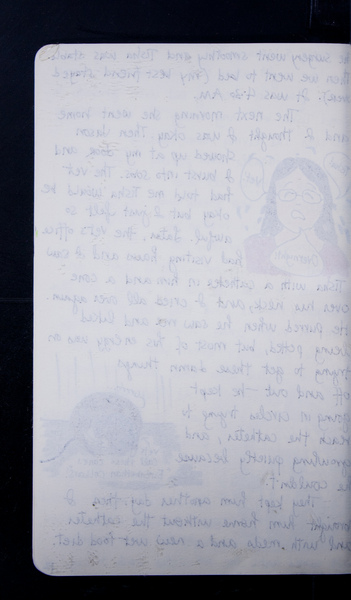 surgery went smoothly and was
then we went to bed (my best friend stayed
over). It was 4:30 Am.
The next morning she went home
and I thought I was okay. Then
showed up at my door and
I burst into sobs. The vet
had told me would be
okay but I just felt so
awful. Later the vet's office
had visiting hours and I saw
with a catheter in him and a cone
over his neck, and I cried all over again.
He purred when he saw me and liked
being petted, but most of his energy was on
trying to get these damn things
off and out - he kept
going in circles trying to
reach the catheter, and
growling quietly because
he couldn't.
They kept him another day, then I
brought him home without the catheter
and with meds and a new wet food diet.